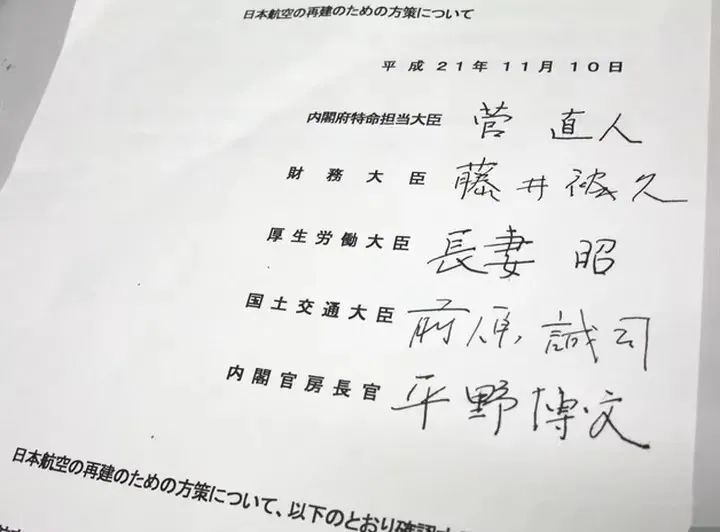 日本航空の再建のための方策について
平成21年11月10日
内閣府特命担当大臣 菅 直人
財務大臣 藤井裕久
厚生労働大臣 長妻 昭
国土交通大臣 前原 誠司
内閣官房長官 平野博文
日本航空の再建のための方策について、以下のとおり確認す